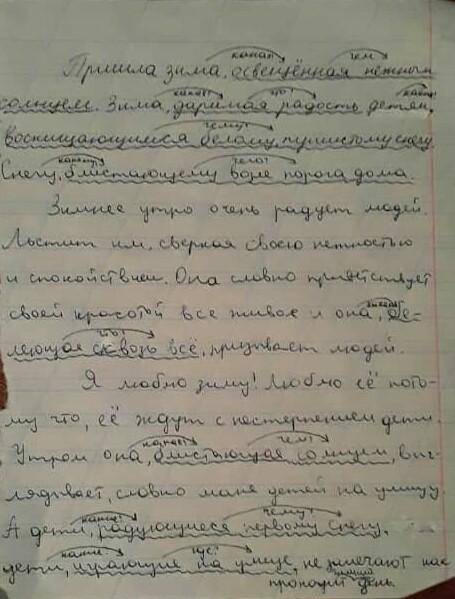 какая? чем
Пришла зима, освещённая нежным
какая? что? каким?
солнцем. Зима, дарящая радость детям,
чему?
восхищающимся белому, пушистому снегу.
какому? чего?
Снегу, блистающему возле порога дома.
Зимнее утро очень радует людей.
Льстит им, сверкая своею нежностью
и спокойствием. Она словно приветствует
какая?
своей красотой все живое и она, бе-
что?
леющая сквозь всё, призывает людей.
Я люблю зиму! Люблю её пото-
му что, её ждут с нестерпением дети.
какая? чем?
Утром она, блистающая солнцем, выг-
лядывает, словно маня детей на улицу.
какие? чему?
А дети, радующиеся первому снегу,
какие где?
дети, играющие на улице, не замечают как
проходит день.